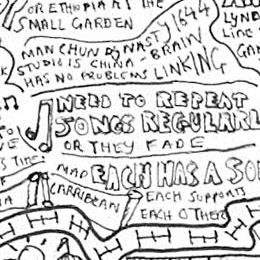 OR ETHIOPIA AT THE
SMALL GARDEN
LYN
LINE
GA
MAN CHUN DYNASTY 1644
STUDIO IS CHINA - BRAIN
HAS NO PROBLEMS LINKING
I NEED TO REPEAT
SONGS REGULARL
OR THEY FADE
TIME
MAP
CARRIBEAN
EACH HAS A SO
EACH SUPPORTS
EACH OTHER